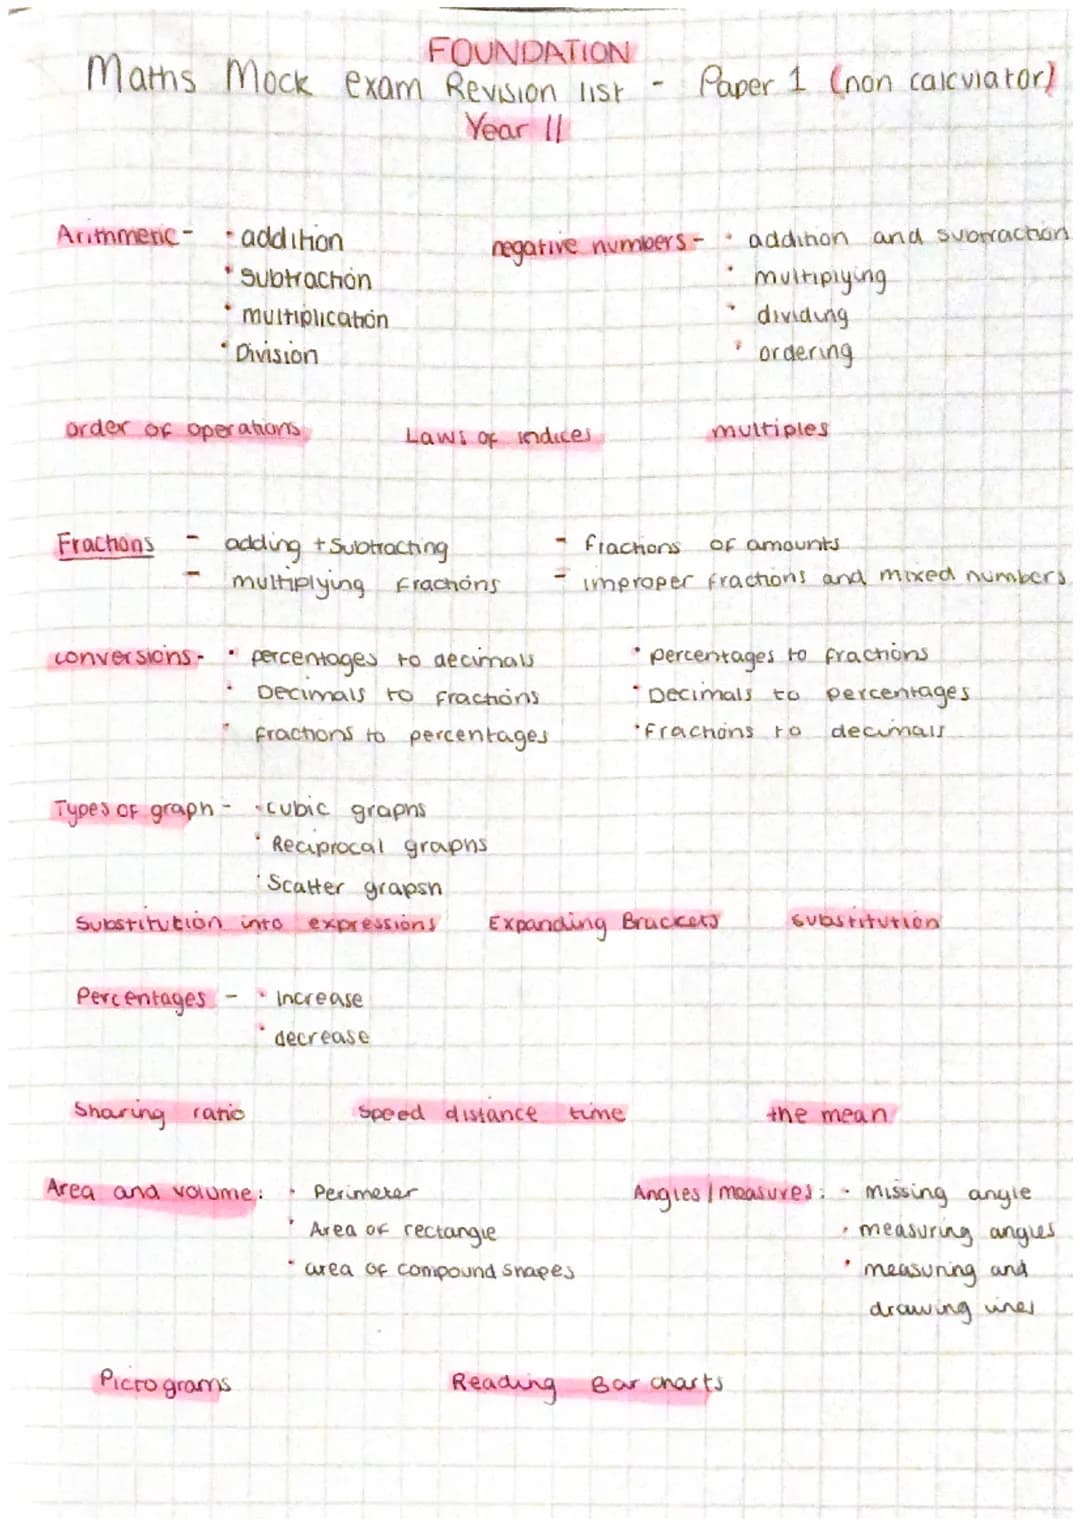 FOUNDATION
Maths Mock exam Revision list - Paper 1 (non calculator)
Year 11
Arithmetic - • addition
• subtraction
• multiplication
• Division
negative numbers - • addition and subtraction
• multiplying
• dividing
• ordering
order of operations Laws of indices multiples
Fractions - adding + Subtracting - fractions of amounts
- multiplying fractions - improper fractions and mixed numbers
conversions - • percentages to decimals • percentages to fractions
• Decimals to fractions • Decimals to percentages
• fractions to percentages • Fractions to decimals
Types of graph - • cubic graphs
• Reciprocal graphs
• Scatter grapsh
Substitution into expressions Expanding Brackets substitution
Percentages - • increase
• decrease
Sharing ratio Speed distance time the mean
Area and volume: • Perimeter
• Area of rectangle
• area of compound shapes
Angles / measures: • missing angle
• measuring angles
• measuring and
drawing lines
Pictograms Reading Bar charts